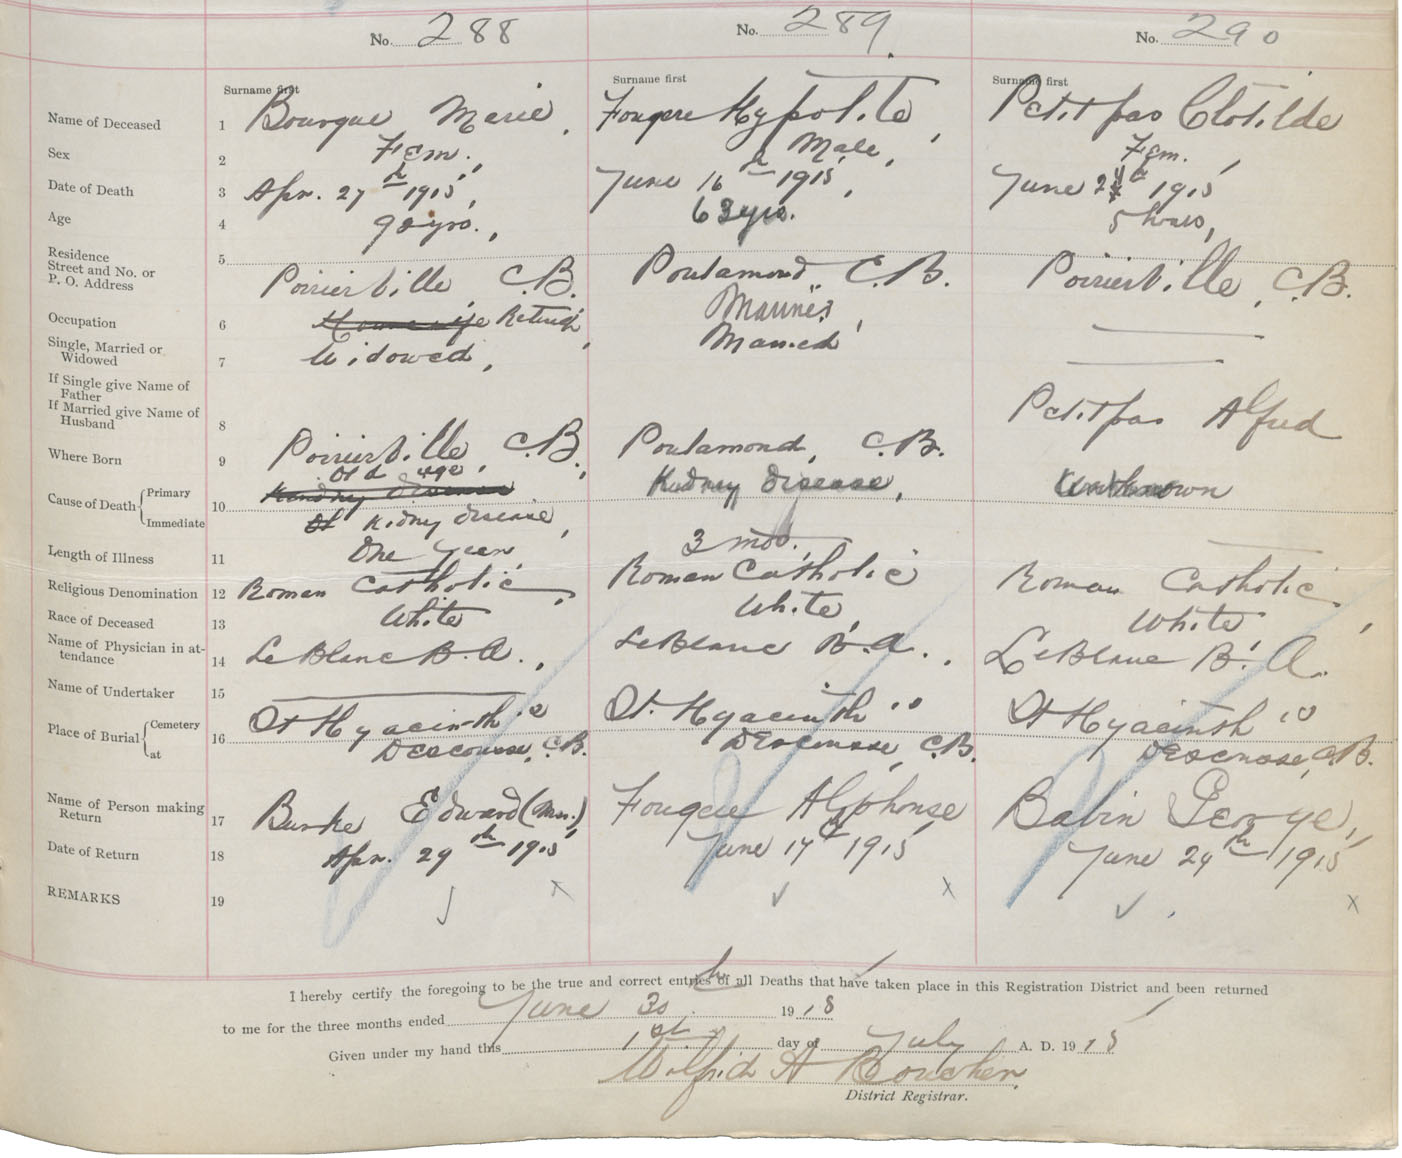 No. 288 No. 289. No. 290
Surname first Surname first Surname first
Name of Deceased 1 Bourque Marie, Fougere Hypolite, Petitpas Clotilde
Sex 2 Fem., Male, Fem.,
Date of Death 3 Apr. 27th 1915, June 16th 1915, June 24th 1915
Age 4 90 yrs., 63 yrs. 5 hours,
Residence
Street and No. or
P. O. Address 5 Poirierville C.B. Poulamond, C.B. Poirierville, C.B.
Occupation 6 Housewife Retired, Mariner,
Single, Married or
Widowed 7 Widowed, Married
If Single give Name of
Father
If Married give Name of
Husband 8 Petitpas Alfred
Where Born 9 Poirierville, C.B., Poulamond, C.B.
Old age,
Cause of Death { Primary Kidney disease Kidney disease, Unknown
10
Immediate Of Kidney disease,
Length of Illness 11 One Year, 3 mos.
Religious Denomination 12 Roman Catholic, Roman Catholic Roman Catholic,
Race of Deceased 13 White White, White,
Name of Physician in at-
tendance 14 LeBlanc B.A., LeBlanc B.A., LeBlanc B.A.
Name of Undertaker 15
Place of Burial { Cemetery St Hyacinth's St. Hyacinth's St Hyacinth's
16
at Descousse, C.B. Descousse, C.B. Descousse, C.B.
Name of Person making
Return 17 Burke Edward (Mrs.), Fougere Alphonse Babin George,
Date of Return 18 Apr. 29th 1915 June 17th 1915 June 24th 1915
REMARKS 19 ✓ x ✓ x ✓ x
I hereby certify the foregoing to be the true and correct entries of all Deaths that have taken place in this Registration District and been returned
to me for the three months ended June 30th 1915
Given under my hand this 1st day of July A. D. 1915
Wilfrid A Boucher,
District Registrar.